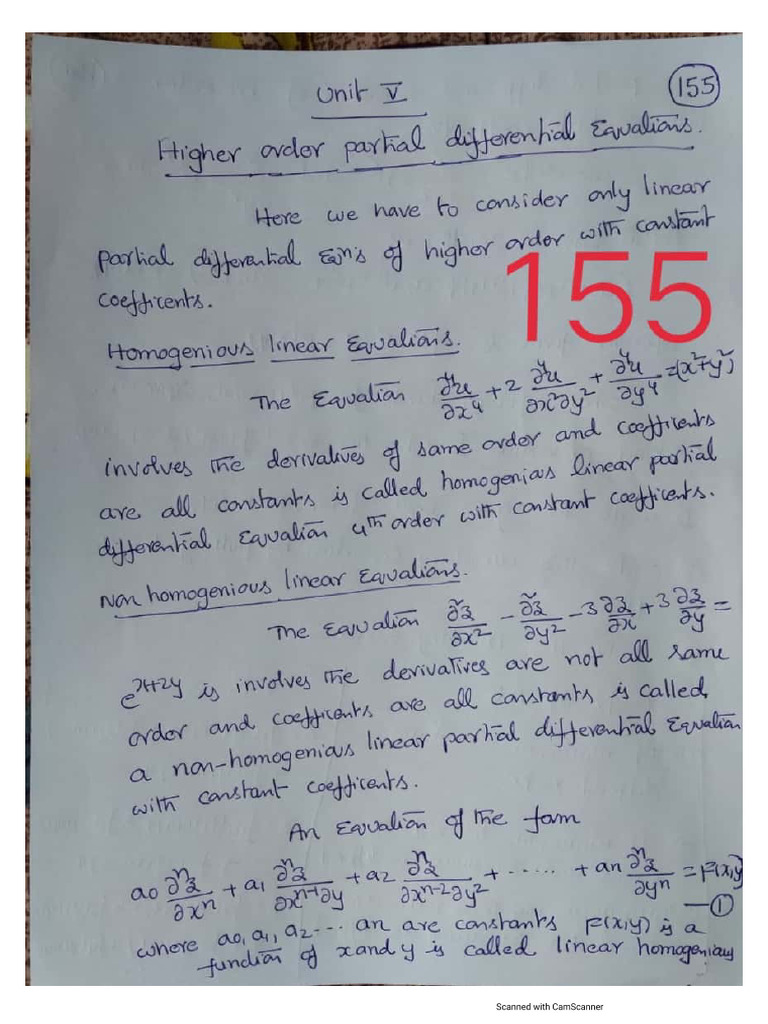 Unit V
155
Higher order partial differential Equations.
Here we have to consider only linear
partial differential Eqn's of higher order with constant
coefficents.
155
Homogenious linear Equations.
The Equation ∂⁴u/∂x⁴ + 2 ∂⁴u/∂x²∂y² + ∂⁴u/∂y⁴ = (x²+y²)
involves the derivatives of same order and coefficents
are all constants is called homogenious linear partial
differential Equation 4th order with constant coefficents.
Non homogenious linear Equations.
The Equation ∂²z/∂x² - ∂²z/∂y² - 3 ∂z/∂x + 3 ∂z/∂y =
e^x+2y is involves the derivatives are not all same
order and coefficents are all constants is called,
a non-homogenious linear partial differential Equation
with constant coefficents.
An Equation of the form
a0 ∂ⁿz/∂xⁿ + a1 ∂ⁿz/∂xⁿ⁻¹∂y + a2 ∂ⁿz/∂xⁿ⁻²∂y² + ...... + an ∂ⁿz/∂yⁿ = F(x,y)
—①
where a0, a1, a2... an are constants F(x,y) is a
function of x and y is called linear homogenious
Scanned with CamScanner